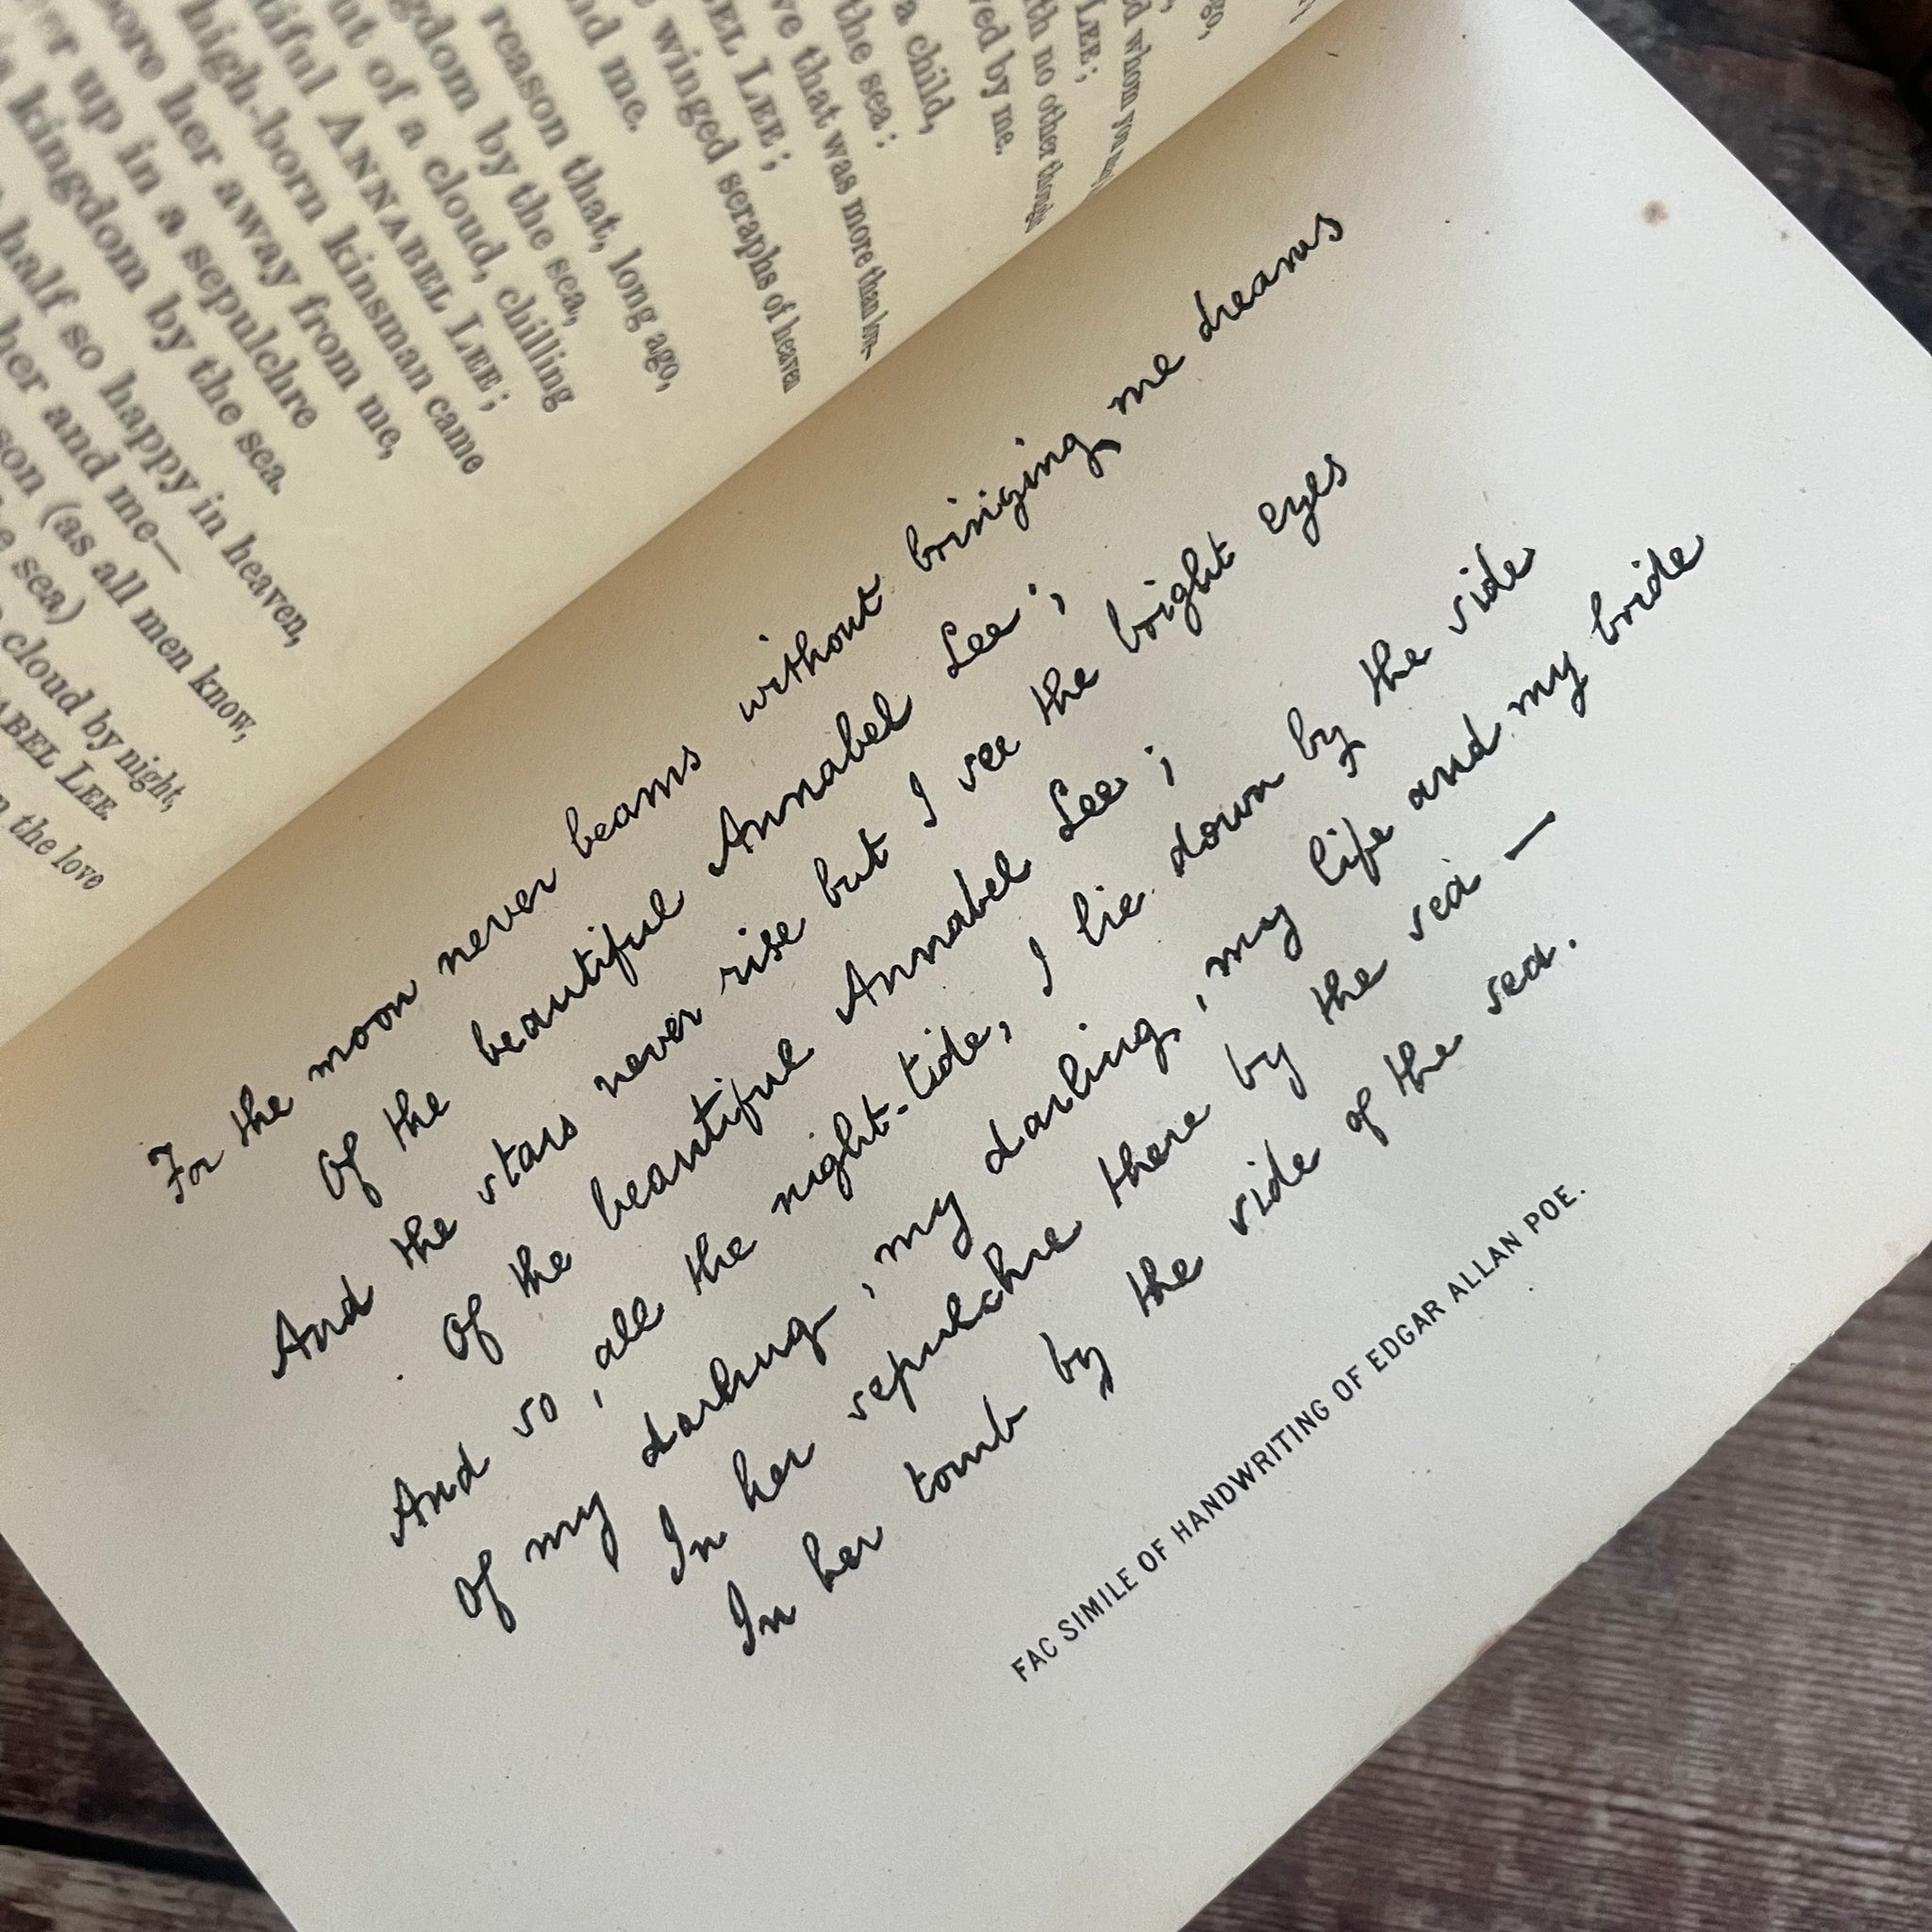 go,
whom you may
LEE;
no other though
by me.
a child,
the sea:
that was more than lov-
LEE;
winged seraphs of heaven
me.
reason that, long ago,
by the sea,
of a cloud, chilling
ANNABEL LEE;
high-born kinsman came
her away from me,
up in a sepulchre
kingdom by the sea.
half so happy in heaven,
her and me—
(as all men know,
sea)
cloud by night,
LEE.
the love
For the moon never beams without bringing me dreams
Of the beautiful Annabel Lee;
And the stars never rise but I see the bright eyes
Of the beautiful Annabel Lee;
And so, all the night-tide, I lie down by the side
Of my darling, my darling, my life and my bride
In her sepulchre there by the sea —
In her tomb by the side of the sea.
FAC SIMILE OF HANDWRITING OF EDGAR ALLAN POE.